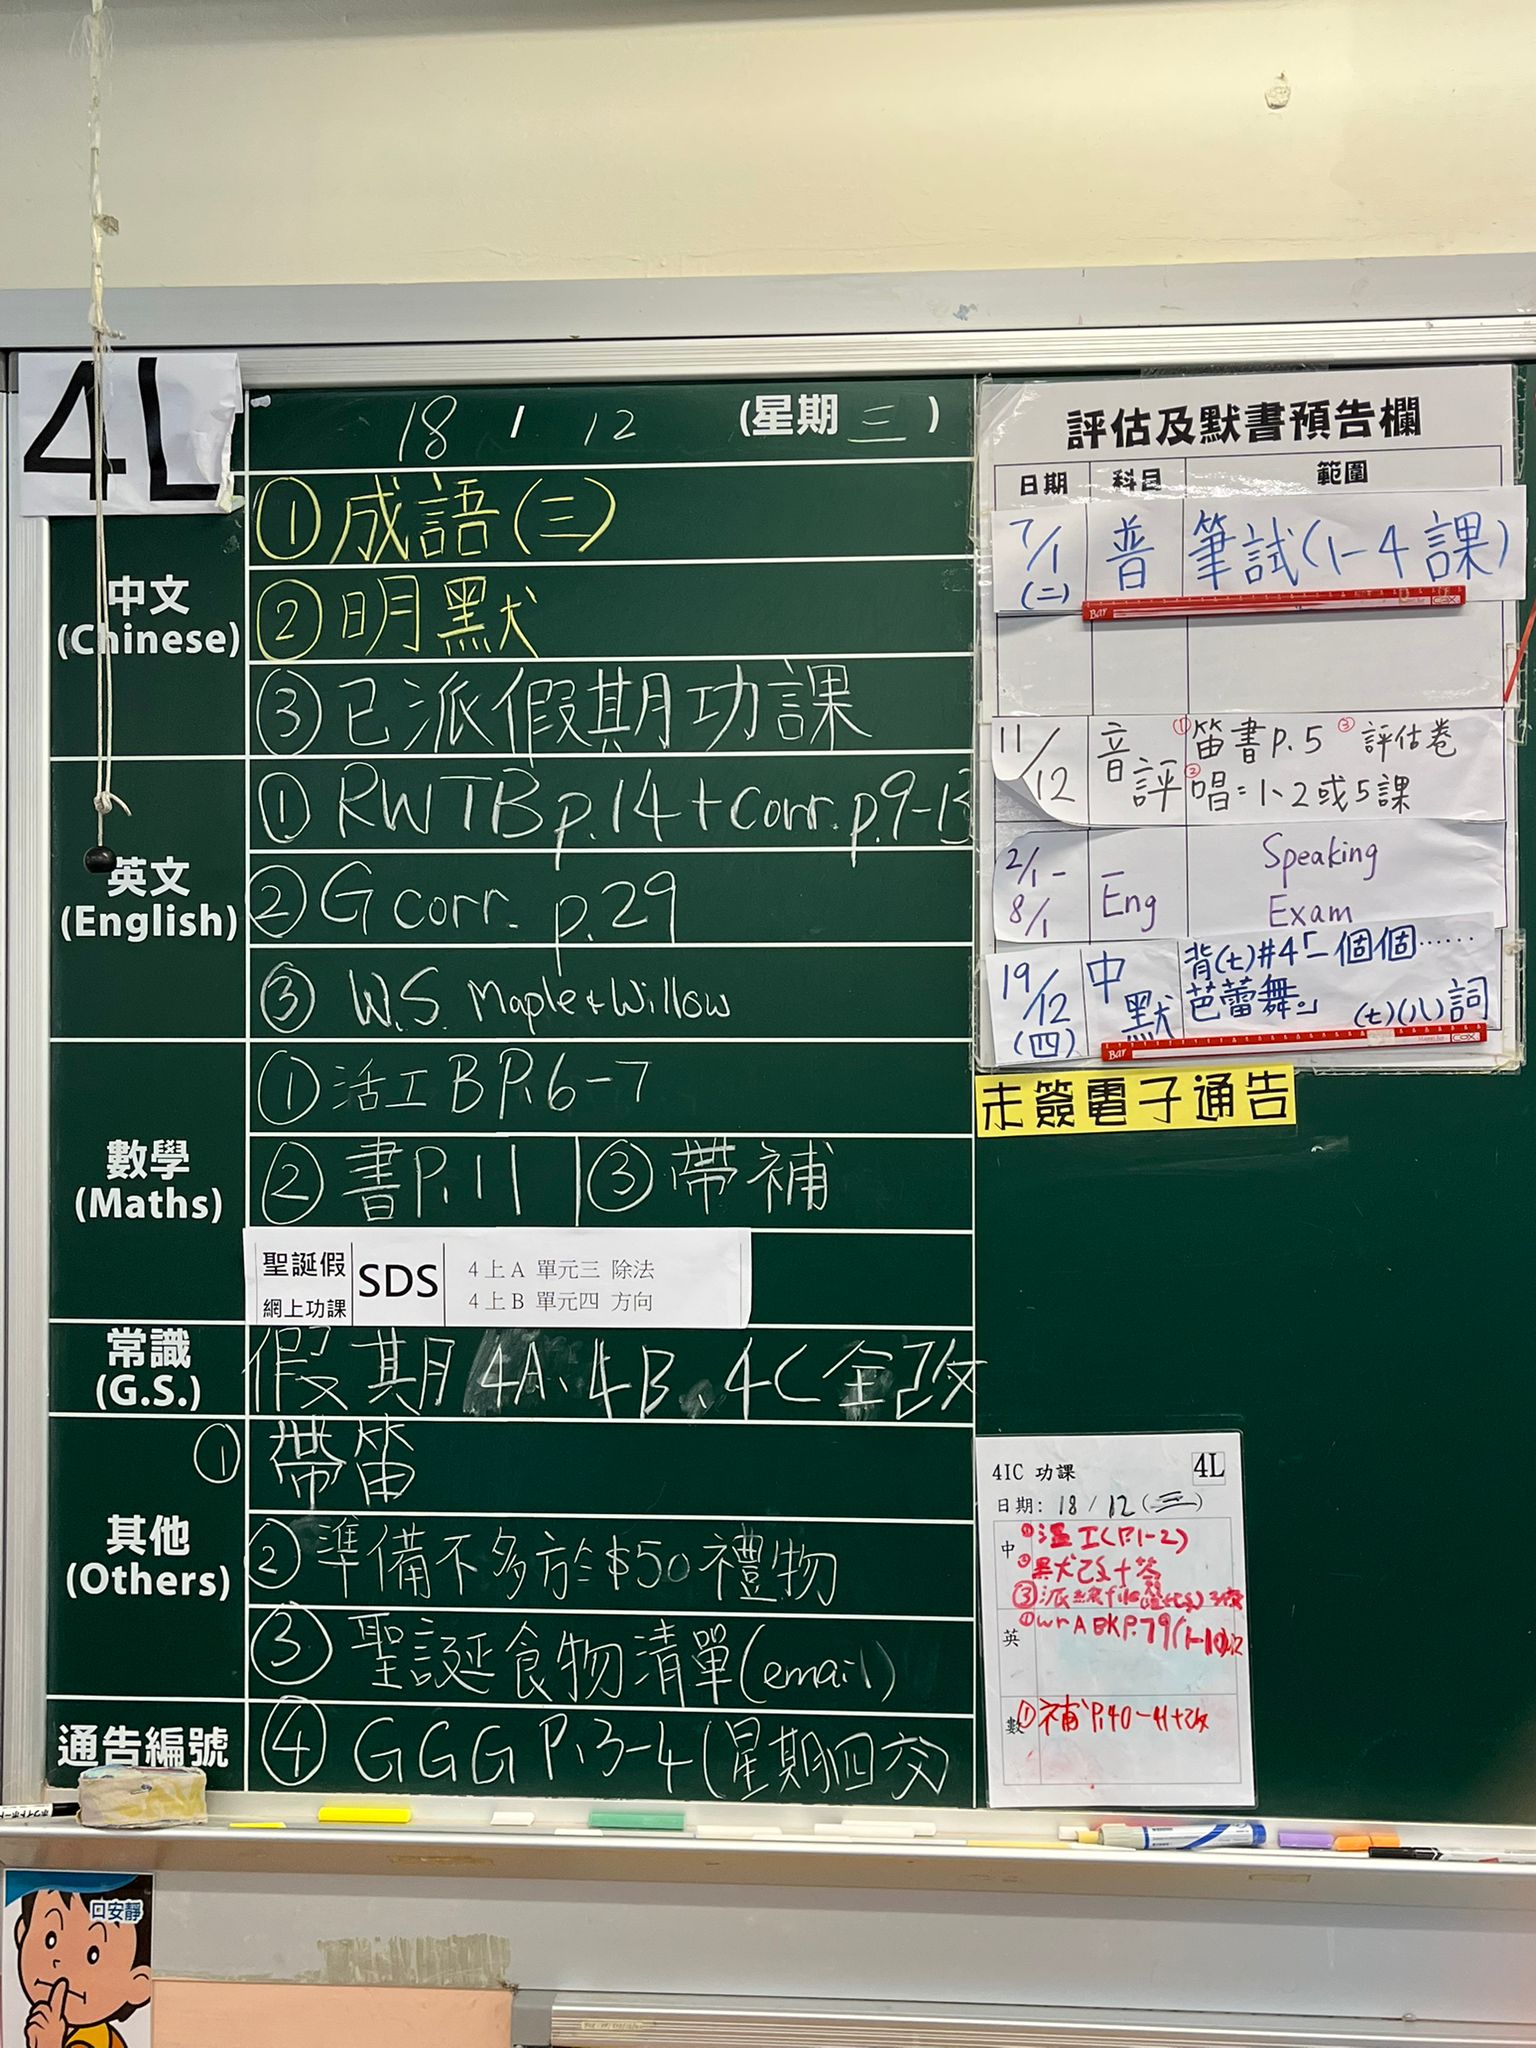 4L
18 / 12 (星期 三 )
中文
(Chinese)
① 成語(三)
② 明默
③ 已派假期功課
英文
(English)
① RWTB p.14 + corr. p.9-13
② G corr. p.29
③ W.S. Maple & Willow
數學
(Maths)
① 活工B P.6-7
② 書P.11 ③ 帶補
聖誕假
網上功課
SDS
4上A 單元三 除法
4上B 單元四 方向
常識
(G.S.)
假期4A、4B、4C全改
其他
(Others)
① 帶笛
② 準備不多於$50禮物
③ 聖誕食物清單(email)
通告編號
④ GGG P.3-4(星期四交)
評估及默書預告欄
日期 科目 範圍
7/1 (二) 普 筆試(1-4課)
11/12 音評 ①笛書p.5 ③評估卷
②唱:1、2或5課
2/1-8/1 Eng Speaking Exam
19/12 (四) 中默 背(七)#4「一個個……
芭蕾舞。」 (七)(八)詞
Bar COX
Bar COX
未簽電子通告
4IC 功課 4L
日期: 18 / 12 (三)
中 ①溫工(P.1-2)
③派
英 ① P.79(1-10)
數 ①補P.40-41+改
口安靜